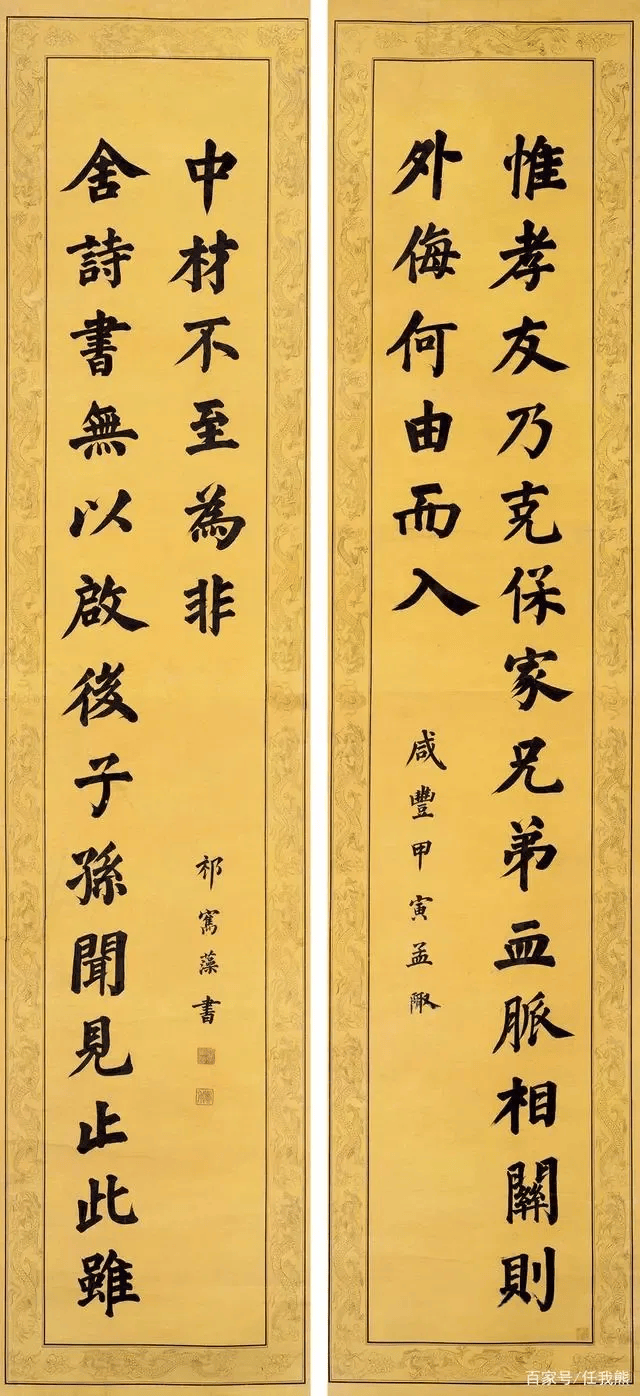 惟孝友乃克保家兄弟血脈相關則
外侮何由而入
咸豐甲寅孟陬
舍詩書無以啟後子孫聞見止此雖
中材不至為非
祁寯藻書
百家号/任我熊